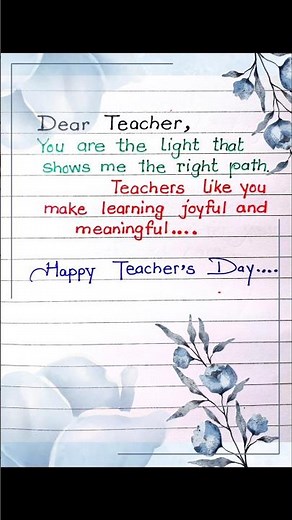 Dear Teacher,
You are the light that
shows me the right path.
Teachers like you
make learning joyful and
meaningful....
Happy Teacher's Day....